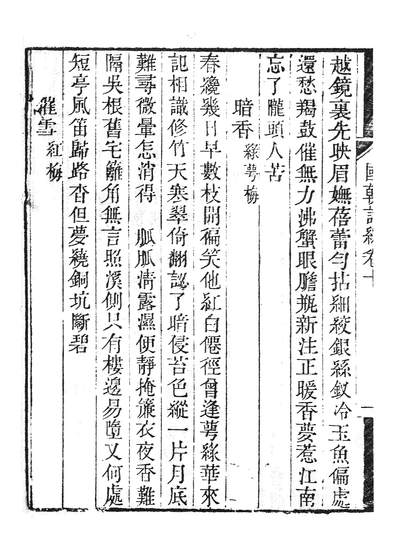 越鏡裏先映眉嫵蓓蕾勻拈細絞銀絲釵冷玉魚偏處
還愁羯鼓催無力沸蟹眼膽瓶新注正暖香夢惹江南
忘了隴頭人苦
暗香綠萼梅
春纔幾日早數枝開徧笑他紅白僊徑曾逢萼綠華來
記相識修竹天寒翠倚翻認了暗侵苔色縱一片月底
難尋微暈怎消得 胍胍淸露濕便靜掩簾衣夜香難
隔吳根舊宅籬角無言照溪側只有樓邊易墮又何處
短亭風笛歸路杳但夢繞銅坑斷碧
紅梅
國朝詞綜卷十
一